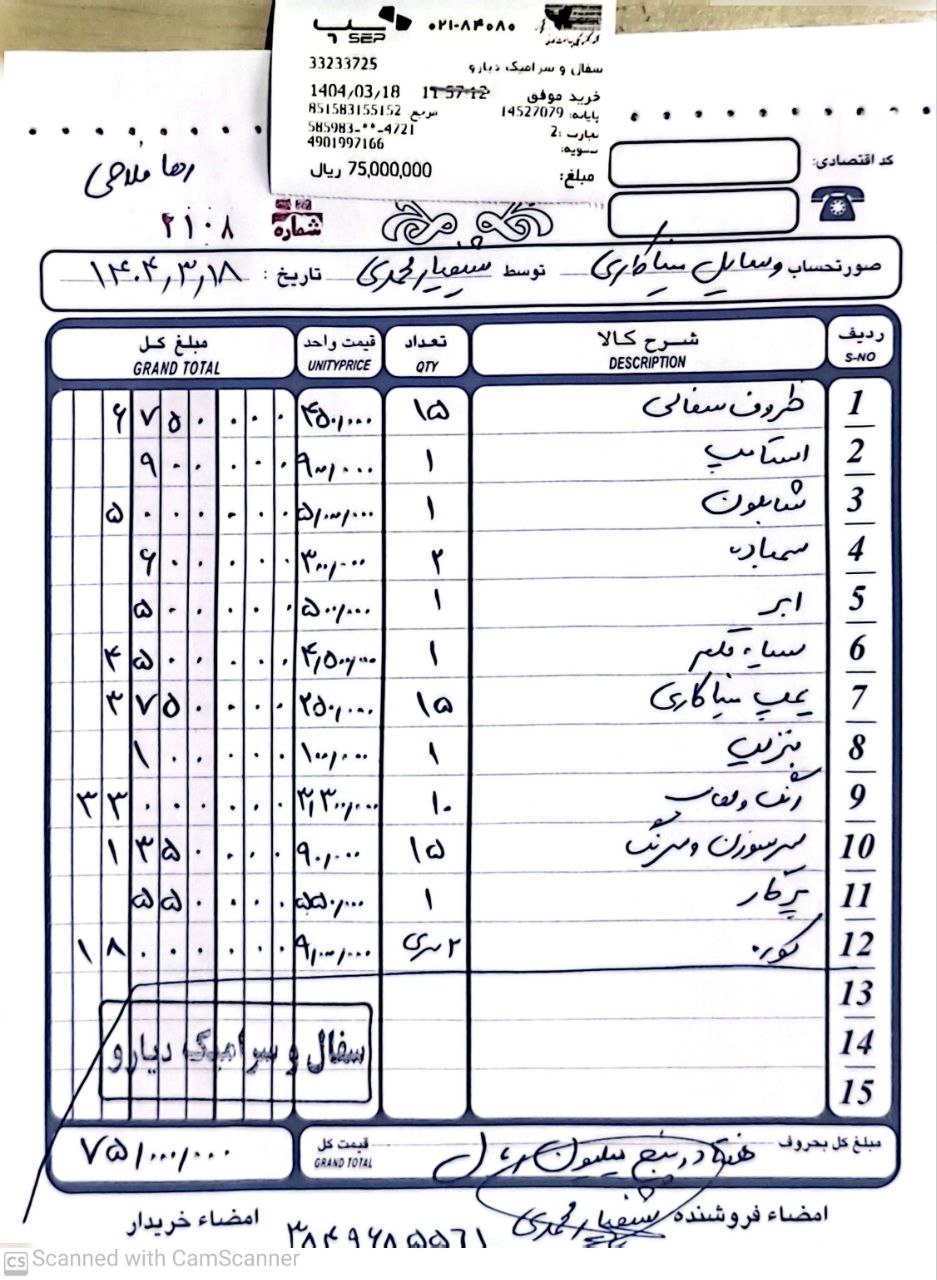 سپ SEP
۰۲۱-۸۴۰۸۰
33233725 سفال و سرامیک دیارو
خرید موفق 11:57:12 1404/03/18
پایانه: 14527079 مرجع 851583155152
تجارت: 2 585983-**-4721
تسویه: 4901997166
مبلغ: 75,000,000 ریال
کد اقتصادی:
رها فلاحی
شماره ۲۱۰۸
صورتحساب وسایل میناکاری توسط تاریخ: ۱۴۰۴٫۳٫۱۸
ردیف شرح کالا تعداد قیمت واحد مبلغ کل
S-NO DESCRIPTION QTY UNITYPRICE GRAND TOTAL
1 ظروف سفالی ۱۵ ۴۵۰٫۰۰۰ ۶۷۵۰۰۰۰
2 استامپ ۱ ۹۰۰٫۰۰۰ ۹۰۰۰۰۰
3 شابلون ۱ ۵٫۰۰۰٫۰۰۰ ۵۰۰۰۰۰۰
4 سمباده ۲ ۳۰۰٫۰۰۰ ۶۰۰۰۰۰
5 ابر ۱ ۵۰۰٫۰۰۰ ۵۰۰۰۰۰
6 سیاه قلم ۱ ۴٫۵۰۰٫۰۰۰ ۴۵۰۰۰۰۰
7 پمپ میناکاری ۱۵ ۲۵۰٫۰۰۰ ۳۷۵۰۰۰۰
8 بنزین ۱ ۱۰۰٫۰۰۰ ۱۰۰۰۰۰
9 رنگ و لعاب ۱۰ ۳٫۳۰۰٫۰۰۰ ۳۳۰۰۰۰۰۰
10 سرسوزن و سرنگ ۱۵ ۹۰٫۰۰۰ ۱۳۵۰۰۰۰
11 پرگار ۱ ۵۵۰٫۰۰۰ ۵۵۰۰۰۰
12 کوره ۲ سری ۹٫۰۰۰٫۰۰۰ ۱۸۰۰۰۰۰۰
13
14
15
سفال و سرامیک دیارو
مبلغ کل بحروف هفتاد و پنج میلیون ریال قیمت کل ۷۵٫۰۰۰٫۰۰۰
GRAND TOTAL
امضاء فروشنده امضاء خریدار
CS Scanned with CamScanner